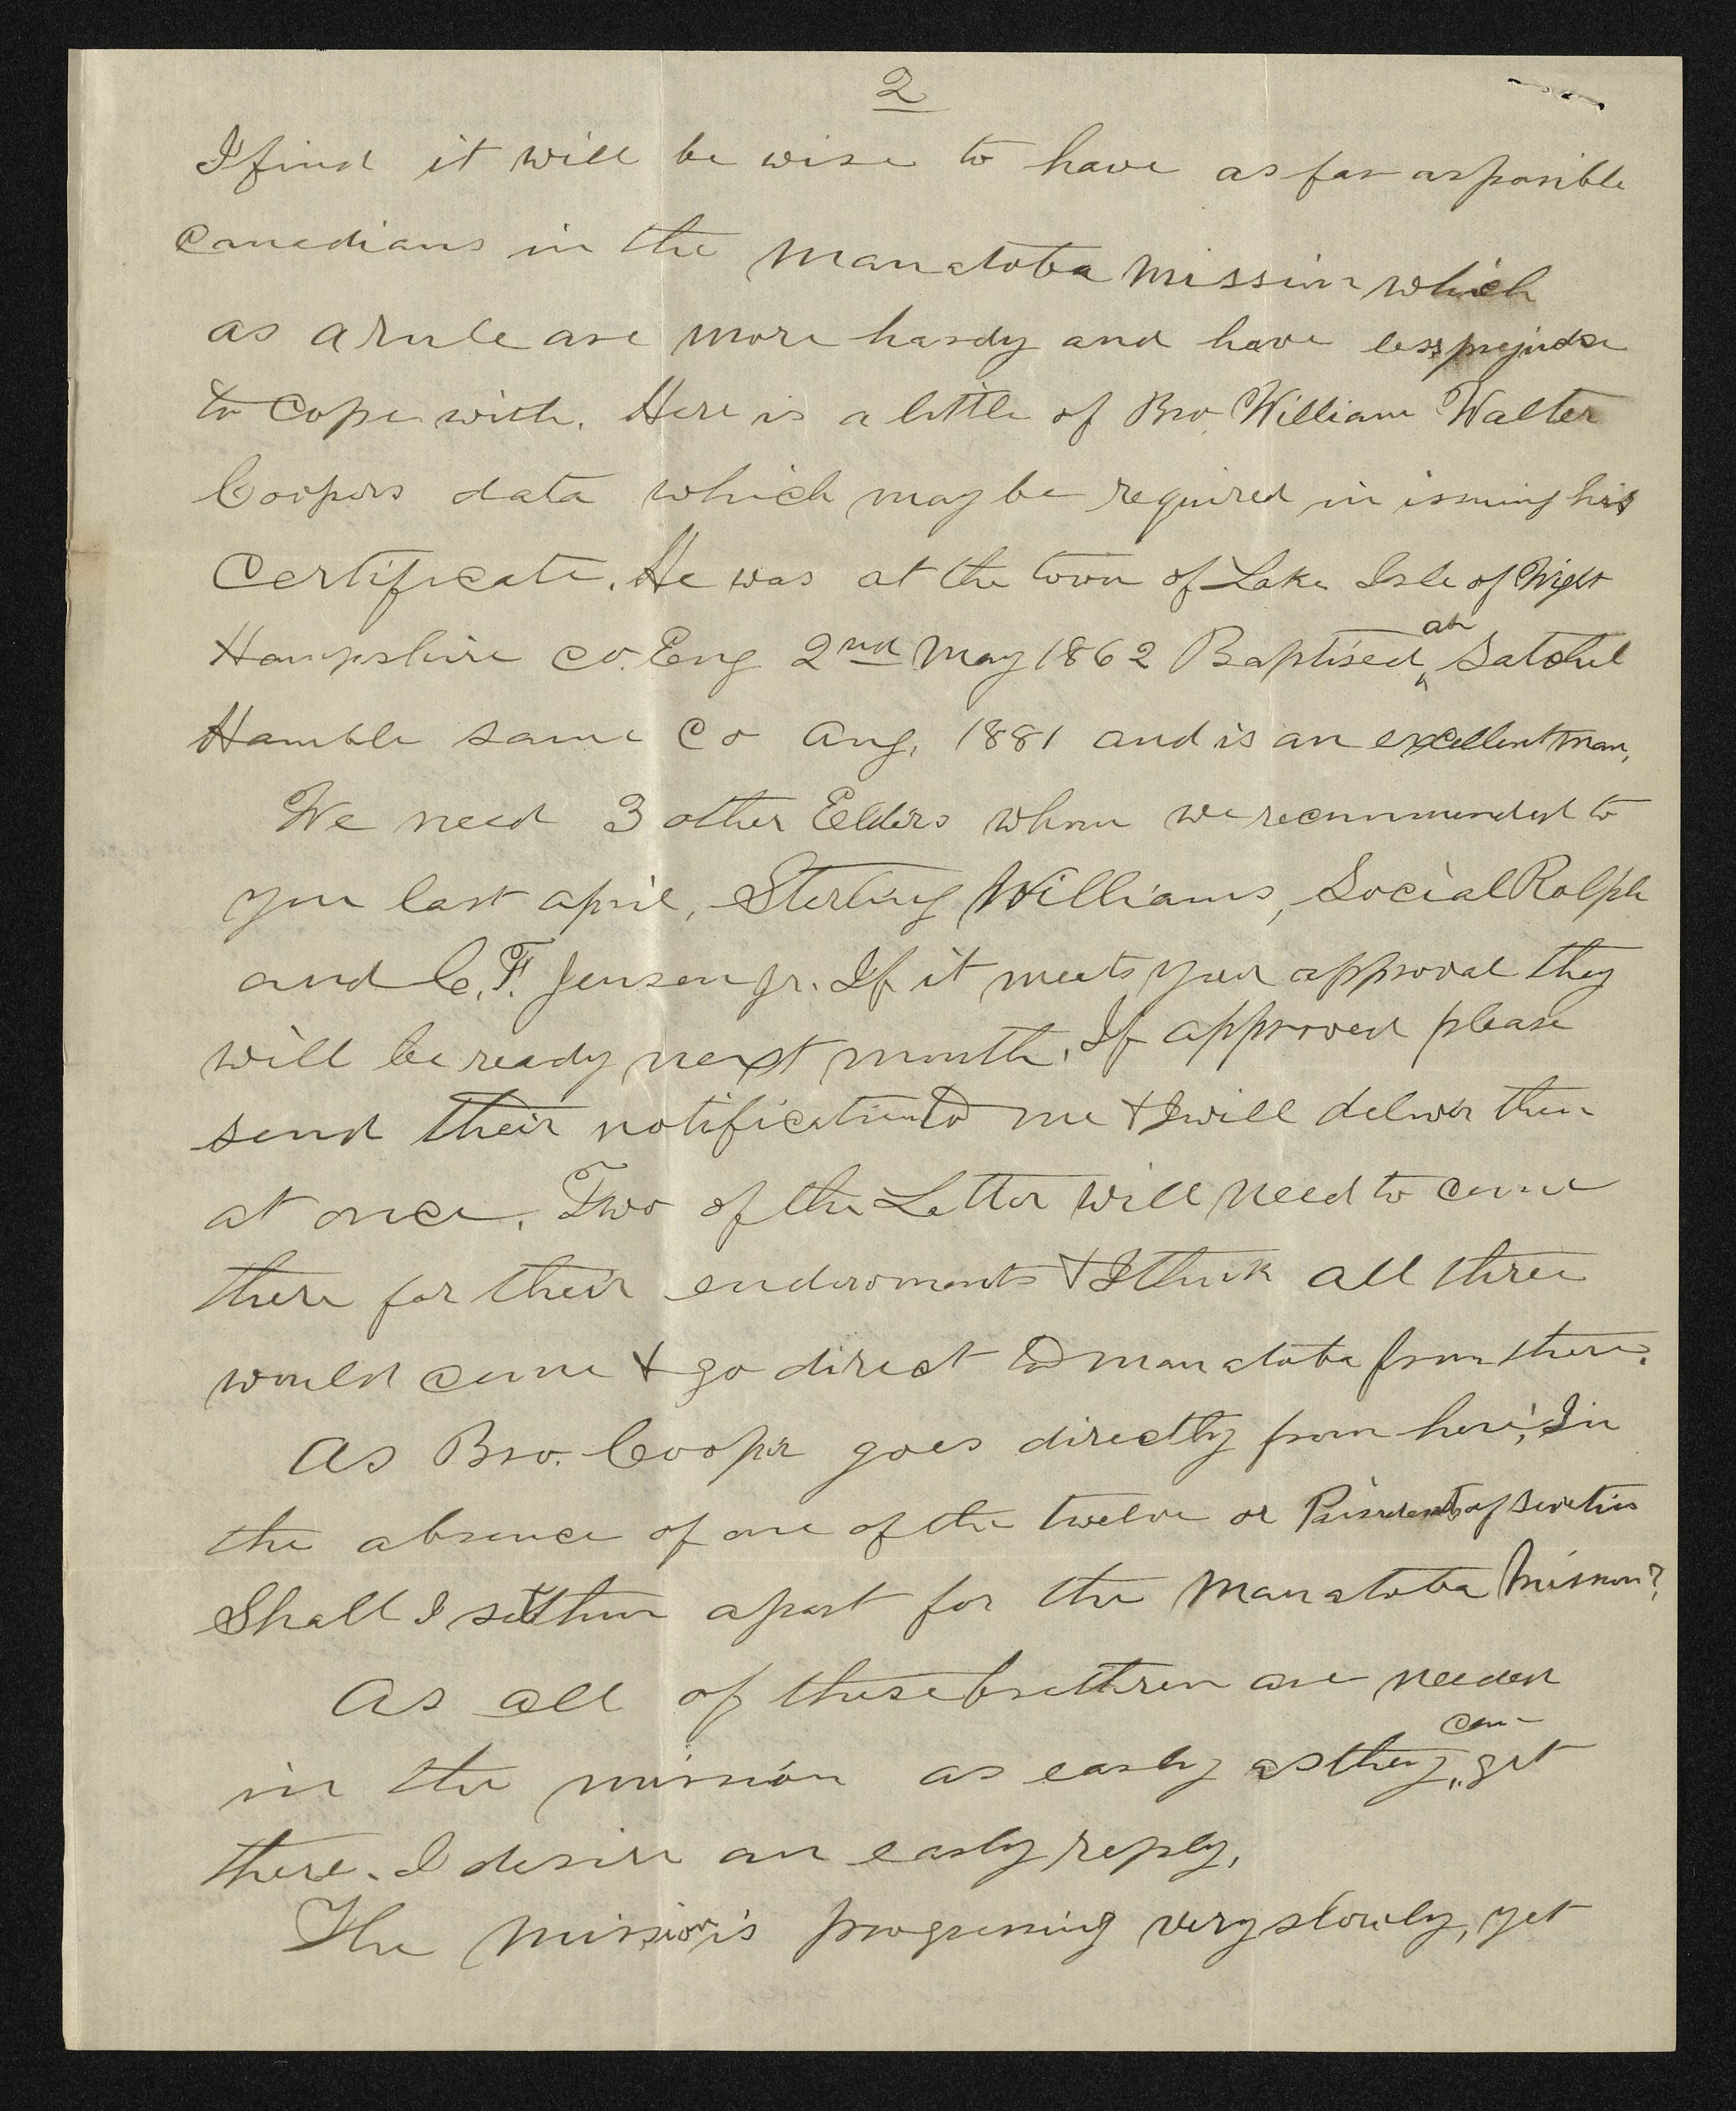 2
I find it will be wise to have as far as possible
Canadians in the Manatoba Mission which
as a rule are more hardy and have less prejudice
to cope with. Here is a little of Bro. William Walter
Coopers data which may be required in issuing his
Certificate. He was at the town of Lake Isle of Wight
Hampshire Co. Eng 2nd May 1862 Baptised at
Hamble same Co Aug. 1881 and is an excellent man,
We need 3 other Elders whom we recommended to
you last april, Sterling Williams, Social Rolph
and C. F. Jensen Jr. If it meets your approval they
will be ready next month. If approved please
send their notification to me & I will deliver them
at once. Two of the Letter will need to come
there for their endowments & I think all three
would come & go direct to Manatoba from there.
As Bro. Cooper goes directly from here, In
the absence of one of the twelve or Presidents of Seventies
Shall I set him apart for the Manatoba Mission?
As all of these brethren are needed
in the mission as early as they can get
there. I desire an early reply,
The Mission is progressing very slowly, yet